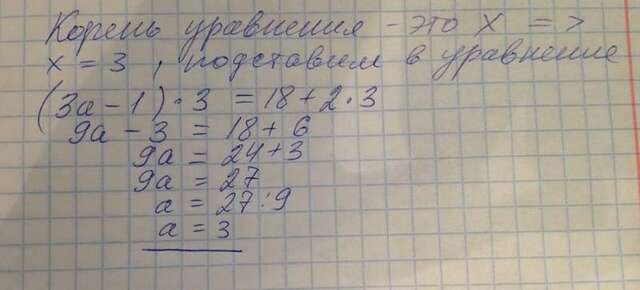 Корень уравнения - это х =>
х = 3 , подставим в уравнение
(3а - 1) · 3 = 18 + 2 · 3
9а - 3 = 18 + 6
9а = 24 + 3
9а = 27
а = 27 : 9
а = 3